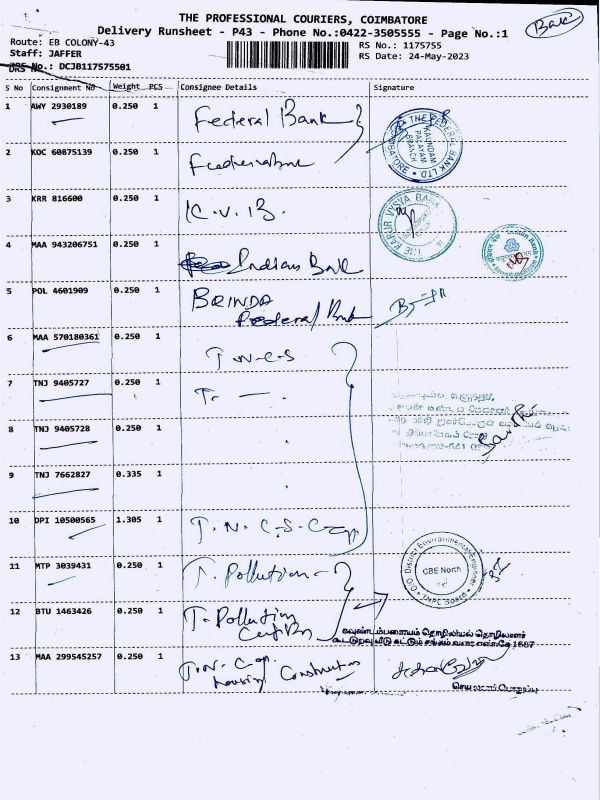 THE PROFESSIONAL COURIERS, COIMBATORE
Bank
Delivery Runsheet - P43 - Phone No.:0422-3505555 - Page No.:1
Route: EB COLONY-43
RS No.: 1175755
Staff: JAFFER
RS Date: 24-May-2023
DRS No.: DCJB117575501
S No Consignment No Weight PCS Consignee Details Signature
1 AWY 2930189 0.250 1 Federal Bank
THE FEDERAL BANK LTD
KAUNDAM PALAYAM BRANCH
2 KOC 60875139 0.250 1
3 KRR 816600 0.250 1 K.V.B.
THE KARUR VYSYA BANK
4 MAA 943206751 0.250 1 Indian Bank
Indian Bank
5 POL 4601909 0.250 1 BRINDA
Federal Bank
6 MAA 570180361 0.250 1 T.N.C.S
7 TNJ 9405727 0.250 1 T. —
8 TNJ 9405728 0.250 1
9 TNJ 7662827 0.335 1
10 DPI 10500565 1.305 1 T.N.C.S.C
11 MTP 3039431 0.250 1 T. Pollution
O/O District Environmental Engineer
CBE North
TNPC Board
12 BTU 1463426 0.250 1 T. Pollution
கவுண்டம்பாளையம் தொழிலியல் தொழிலாளர்
கூட்டுறவு வீடு கட்டும் சங்கம் வரை எண்கே 1687
13 MAA 299545257 0.250 1 T.N. Cop
housing Construction